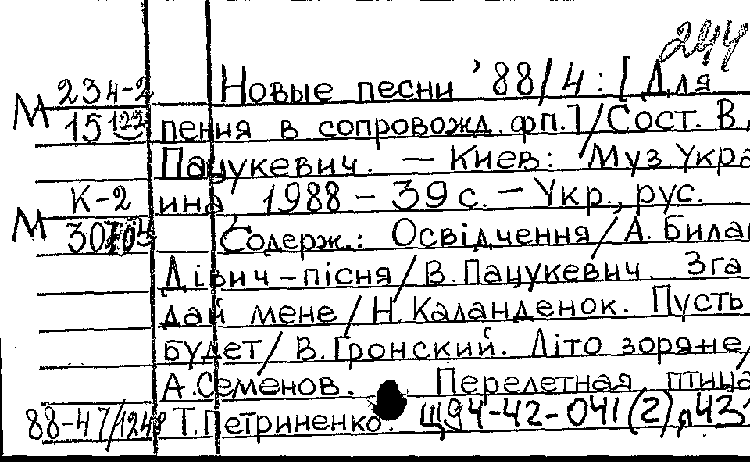 244
234-2 Новые песни '88/4: [Для
М 15122 пения в сопровожд. фп.]/Сост. В.
Пацукевич. — Киев: Муз. Укра
К-2 ина, 1988 — 39 с. — Укр., рус.
М Содерж.: Освiдчення/А. Била
Дiвич-пiсня/В. Пацукевич. Зга
дай мене/Н. Каланденок. Пусть
будет/В. Гронский. Лiто зоряне/
А. Семенов. Перелетная птица
88-47/1248 Т. Петриненко. Щ94-42-041(2)я43